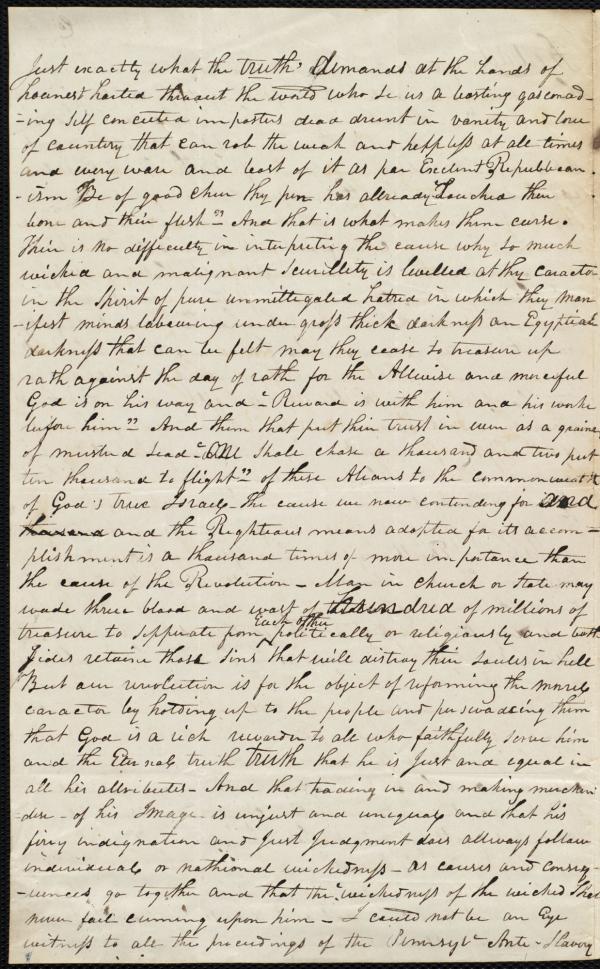 Just exactly what the truth, demands at the hands of
hounest harted thrueout the world who se us a bosting gasconad-
-ing self conceited impostors dead drunk in vanity and love
of countery that can rob the weak and helpless at all times
and every ware and bost of it as par Exclent Republican.
-ism Be of good cheer thy pen has allready "Touched their
bone and their flesh" And that is what makes them curse.
Their is no difficulty in interpreting the cause why so much
wicked and malignant scurillety is levelled at thy caractor
in the spirit of pure unmittegated hatred in which they man
-ifest minds labouring under gross thick darkness an Egyptian
darkness that can be felt may they cease to treasure up
rath against the day of rath for the Allwise and merciful
God is on his way and "Reward is with him and his worke
before him" And them that put their trust in even as a graine
of musterd sead "One shale chase a thousand and two put
ten thousand to flight" of these Aleans to the commonwealth
of God's true Israel - The cause we now contending for and
thousand and the Righteous means adopted for its accom-
plishment is a thousand times of more importance than
the cause of the Revolution - Man in church or state may
wade threw blood and wast of Houndred of millions of
treasure to sepperate from Each other politically or religiously and both
sides retaine those sins that will distroy their soules in hell
But our revolution is for the object of reforming the morals
caractor by holding up to the people and persuadeing them
that God is a rich rewarder to all who faithfully serve him
and the Eternal truth truth that he is just and equal in
all his attributes - And that trading in and making merchen
-dise - of his Image is unjust and unequal and that his
firey indignation and just Judgment does allways follow
individual or nathional wickedness - as causes and conseq-
-uences go together and that the "wickedness of the wicked shal
never fail cumming upon him - I could not be an Eye
witness to all the proceedings of the Pennsylv Ante-Slavory